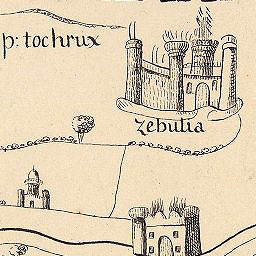 p: tochrux
zebulia